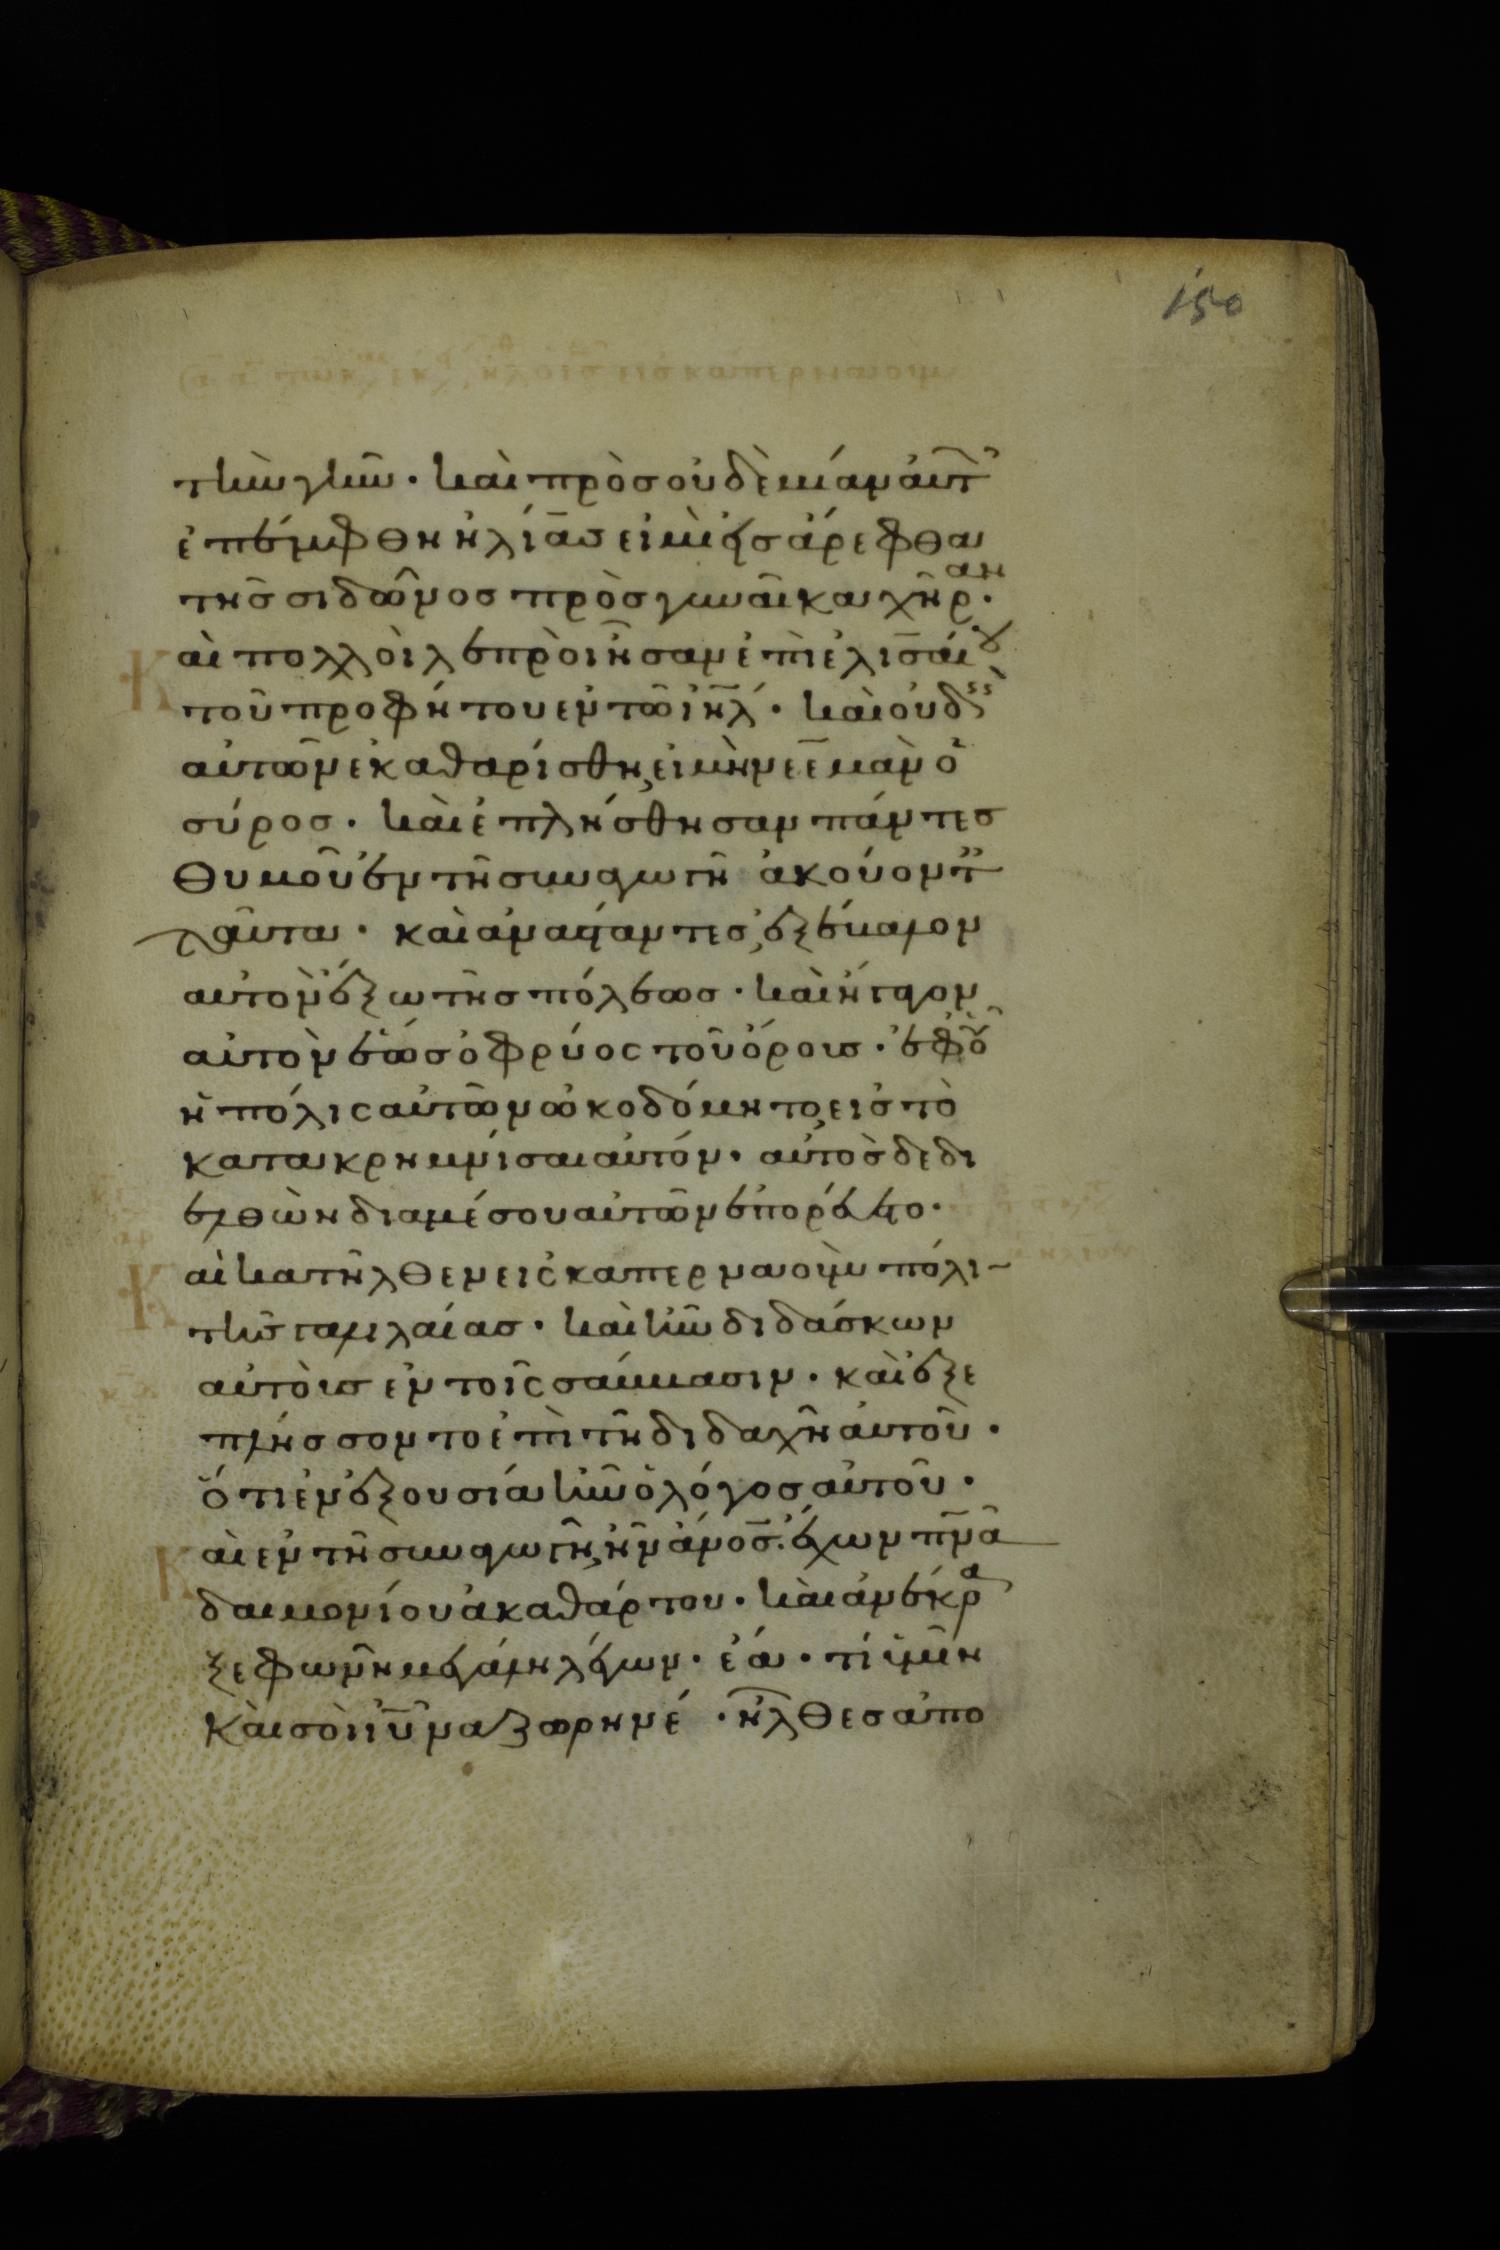 150
τὴν γῆν · καὶ πρὸς οὐδεμίαν αὐτ
ἐπέμφθη ἠλίας εἰ μὴ εἰς σάρεφθα
τῆς σιδῶνος πρὸς γυναῖκα χῆραν ·
Καὶ πολλοὶ λεπροὶ ἦσαν ἐπὶ ἐλισαίου
τοῦ προφήτου ἐν τῶ ιηλ · καὶ οὐδεὶς
αὐτῶν ἐκαθαρίσθη, εἰ μὴ νεεμὰν ὁ
σύρος · καὶ ἐπλήσθησαν πάντες
θυμοῦ ἐν τῆ συναγωγῆ ἀκούοντ
ταῦτα · καὶ ἀναστάντες, ἐξέβαλον
αὐτὸν ἔξω τῆς πόλεως · καὶ ἤγαγον
αὐτὸν ἕως ὀφρύος τοῦ ὄρους · ἐφ οὗ
ἡ πόλις αὐτῶν ὠκοδόμητο, εἰς τὸ
κατακρημνίσαι αὐτόν · αὐτὸς δὲ δι
ελθὼν διὰ μέσου αὐτῶν ἐπορεύετο ·
Καὶ κατῆλθεν εἰς καπερναοὺμ πόλι
τῆς γαλιλαίας · καὶ ἦν διδάσκων
αὐτοὺς ἐν τοῖς σάββασιν · καὶ ἐξε
πλήσσοντο ἐπὶ τῆ διδαχῆ αὐτοῦ ·
ὅτι ἐν ἐξουσία ἦν ὁ λόγος αὐτοῦ ·
Καὶ ἐν τῆ συναγωγῆ, ἦν ἄνος ἔχων πνα
δαιμονίου ἀκαθάρτου · καὶ ἀνέκρα
ξε φωνῆ μεγάλη λέγων · ἔα · τί ἡμῖν
καὶ σοὶ ιυ ναζωρηνέ · ἦλθες ἀπο